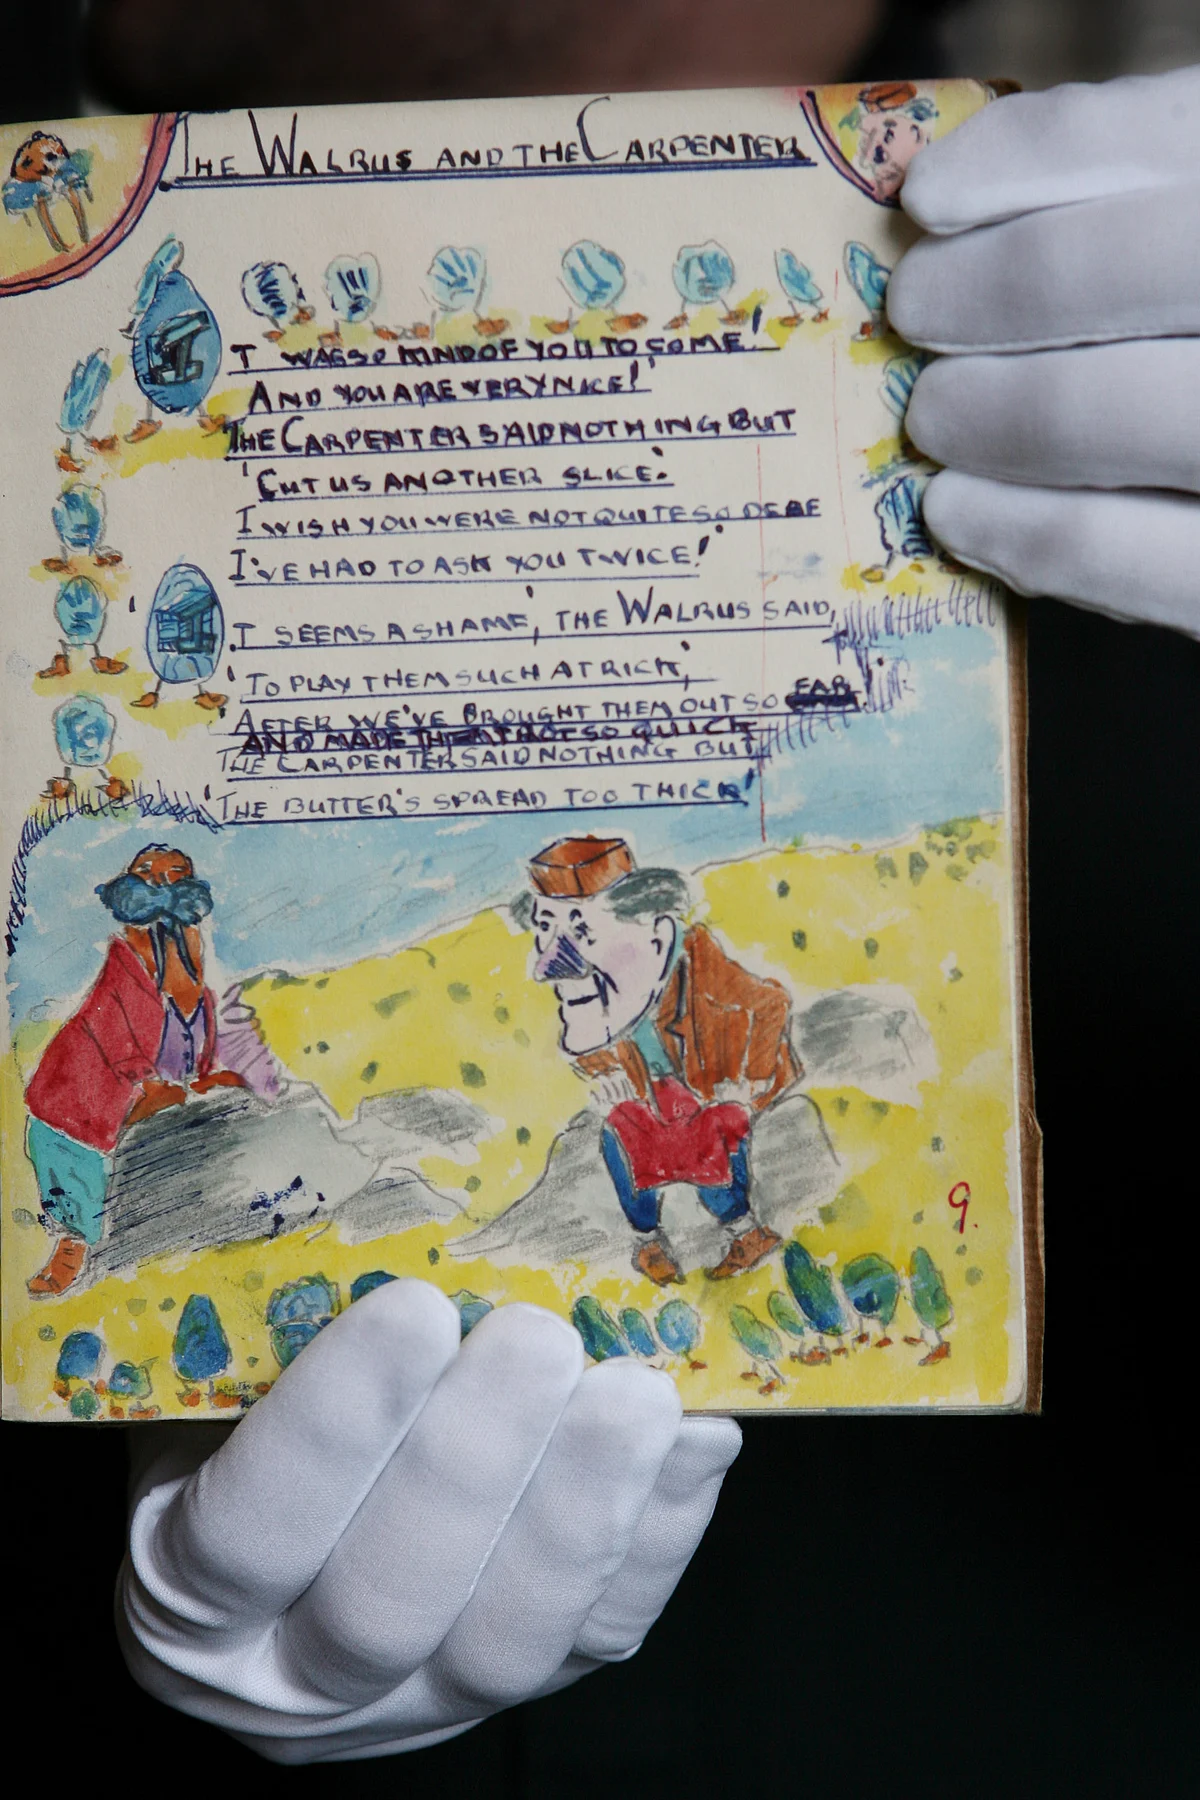 THE WALRUS AND THE CARPENTER
IT WAS SO KIND OF YOU TO COME!
AND YOU ARE VERY NICE!'
THE CARPENTER SAID NOTHING BUT
'CUT US ANOTHER SLICE.
I WISH YOU WERE NOT QUITE SO DEAF
I'VE HAD TO ASK YOU TWICE!'
'IT SEEMS A SHAME,' THE WALRUS SAID,
'TO PLAY THEM SUCH A TRICK,
AFTER WE'VE BROUGHT THEM OUT SO FAR
AND MADE THEM TROT SO QUICK
THE CARPENTER SAID NOTHING BUT
'THE BUTTER'S SPREAD TOO THICK'
9.